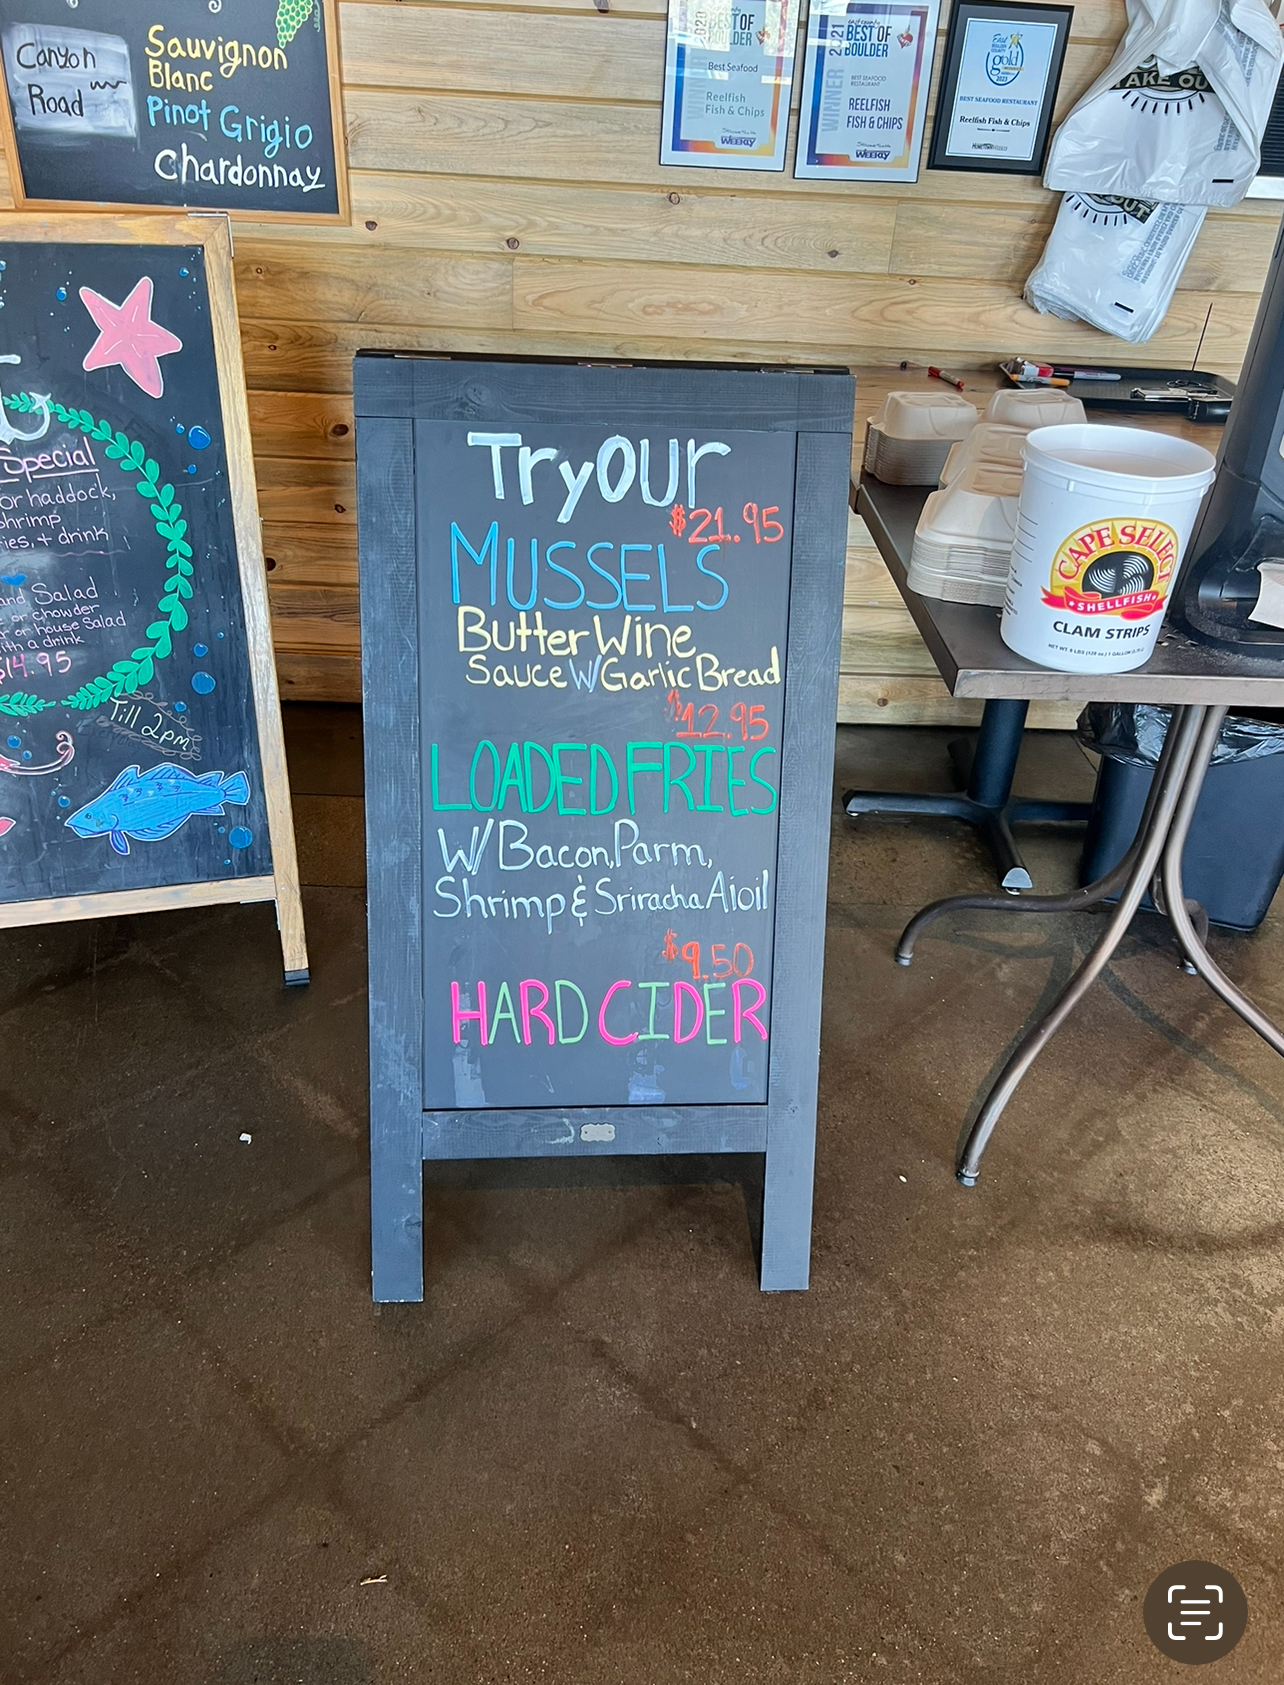 Canyon
Road
Sauvignon
Blanc
Pinot Grigio
Chardonnay
2020
BEST OF
BOULDER
Best Seafood
Reelfish
Fish & Chips
WEEKLY
WINNER 2021
BEST OF
BOULDER
BEST SEAFOOD
RESTAURANT
REELFISH
FISH & CHIPS
WEEKLY
East
gold
2023
BEST SEAFOOD RESTAURANT
Reelfish Fish & Chips
Special
or haddock,
shrimp
+ drink
and Salad
or chowder
or house Salad
with a drink
$14.95
Till 2pm
Try OUr
$21.95
MUSSELS
Butter Wine
Sauce W/ Garlic Bread
$12.95
LOADED FRIES
W/ Bacon, Parm,
Shrimp & Sriracha Aioil
$9.50
HARD CIDER
CAPE SELECT
SHELLFISH
CLAM STRIPS